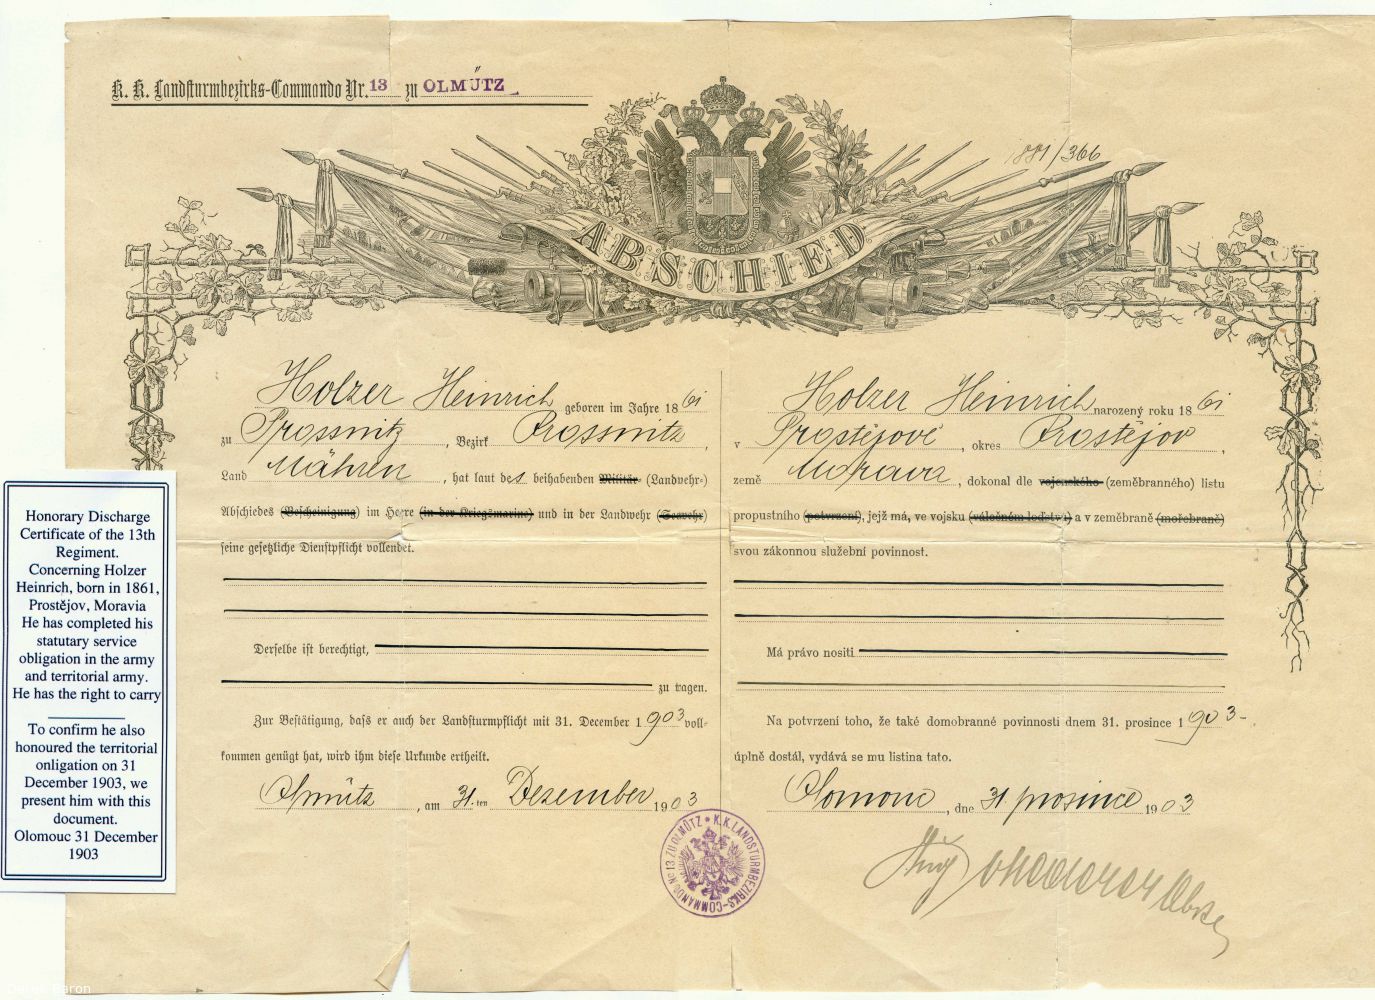 K. K. Landsturmbezirks-Commando Nr. 13 zu OLMÜTZ
1881/366
ABSCHIED
Holzer Heinrich geboren im Jahre 1861
zu Prossnitz, Bezirk Prossnitz,
Land Mähren, hat laut des beihabenden Militär- (Landwehr-)
Abschiedes (Bescheinigung) im Heere (in der Kriegsmarine) und in der Landwehr (Seewehr)
seine gesetzliche Dienstpflicht vollendet.
Derselbe ist berechtigt,
zu tragen.
Zur Bestätigung, dass er auch der Landsturmpflicht mit 31. December 1903 voll-
kommen genügt hat, wird ihm diese Urkunde ertheilt.
Olmütz, am 31.ten Dezember 1903
Holzer Heinrich narozený roku 1861
v Prostějově, okres Prostějov,
země Morava, dokonal dle vojenského (zeměbranného) listu
propustního (potvrzení), jejž má, ve vojsku (válečném loďstvu) a v zeměbraně (mořebraně)
svou zákonnou služební povinnost.
Má právo nositi
Na potvrzení toho, že také domobranné povinnosti dnem 31. prosince 1903
úplně dostál, vydává se mu listina tato.
Olomouc, dne 31 prosince 1903
K.K. LANDSTURMBEZIRKS-COMMANDO No 13 ZU OLMÜTZ
Honorary Discharge
Certificate of the 13th
Regiment.
Concerning Holzer
Heinrich, born in 1861,
Prostějov, Moravia
He has completed his
statutary service
obligation in the army
and territorial army.
He has the right to carry
To confirm he also
honoured the territorial
onligation on 31
December 1903, we
present him with this
document.
Olomouc 31 December
1903
Baron